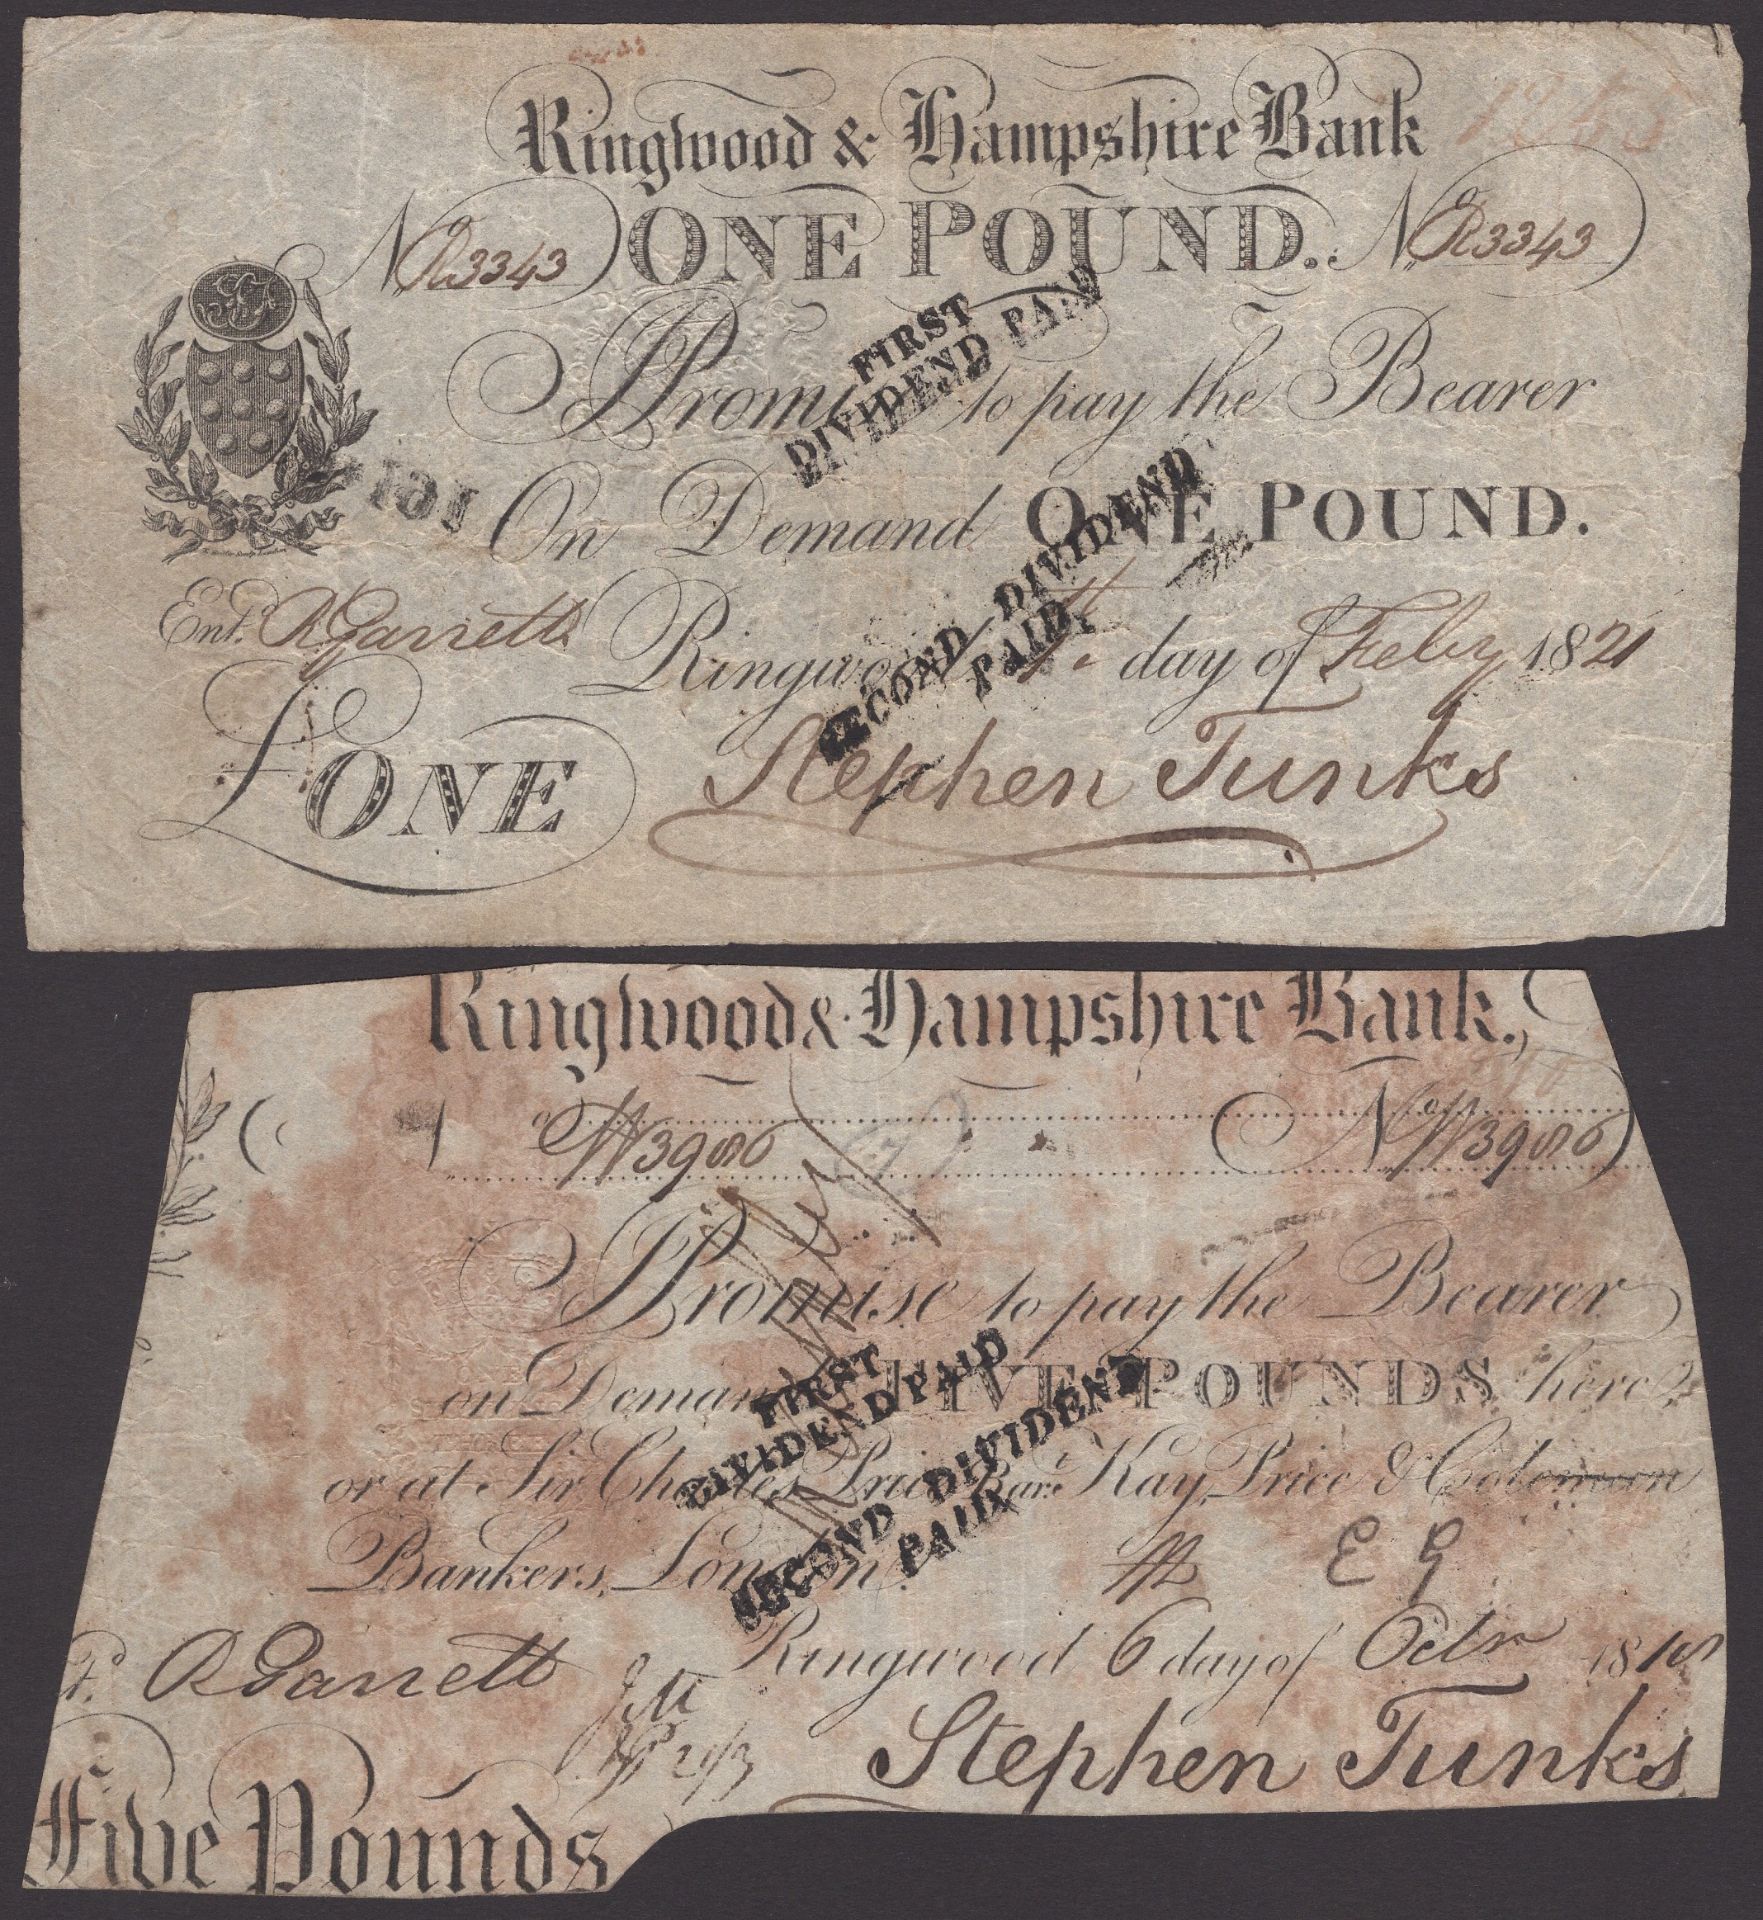 Ringwood & Hampshire Bank
No R3343 ONE POUND. No R3343
I Promise to pay the Bearer
On Demand ONE POUND.
Entd. R Garrett Ringwood day of Feby 1821
£ONE Stephen Tunks
FIRST
DIVIDEND PAID
SECOND DIVIDEND
PAID
Ringwood & Hampshire Bank.
W3986 No W3986
I Promise to pay the Bearer
on Demand FIVE POUNDS here
or at Sir Charles Price Bart. Kay, Price & Coleman
Bankers, London.
E G
R Garrett Ringwood 6 day of Octr 18
Stephen Tunks
Five Pounds
FIRST
DIVIDEND PAID
SECOND DIVIDEND
PAID